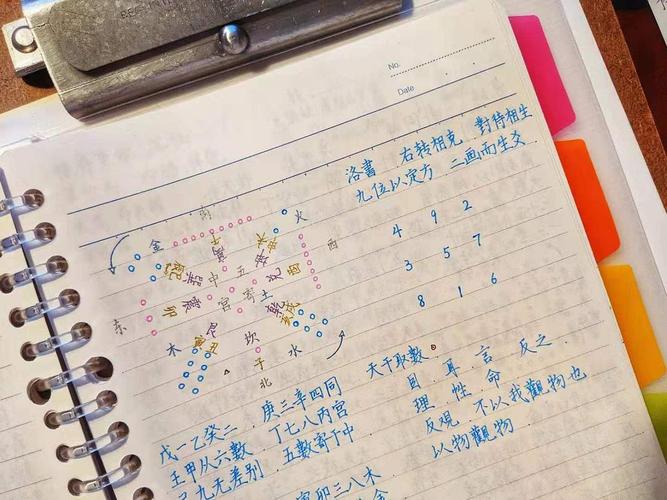 No.
Date
洛書 右转相克 對待相生
九位以定方 二画而生爻
4 9 2
3 5 7
8 1 6
南
金 火
午
巽 中 五
东 卯 震 宫 寄 土 兑 酉 西
乾
木 坎 水
子
北
天干取數
目 耳 言 反之
理 性 命
反观 不以我觀物也
以物觀物
戊一乙癸二 庚三辛四同
壬甲从六數 丁七八丙宫
己九无差别 五數寄于中
寅卯三八木